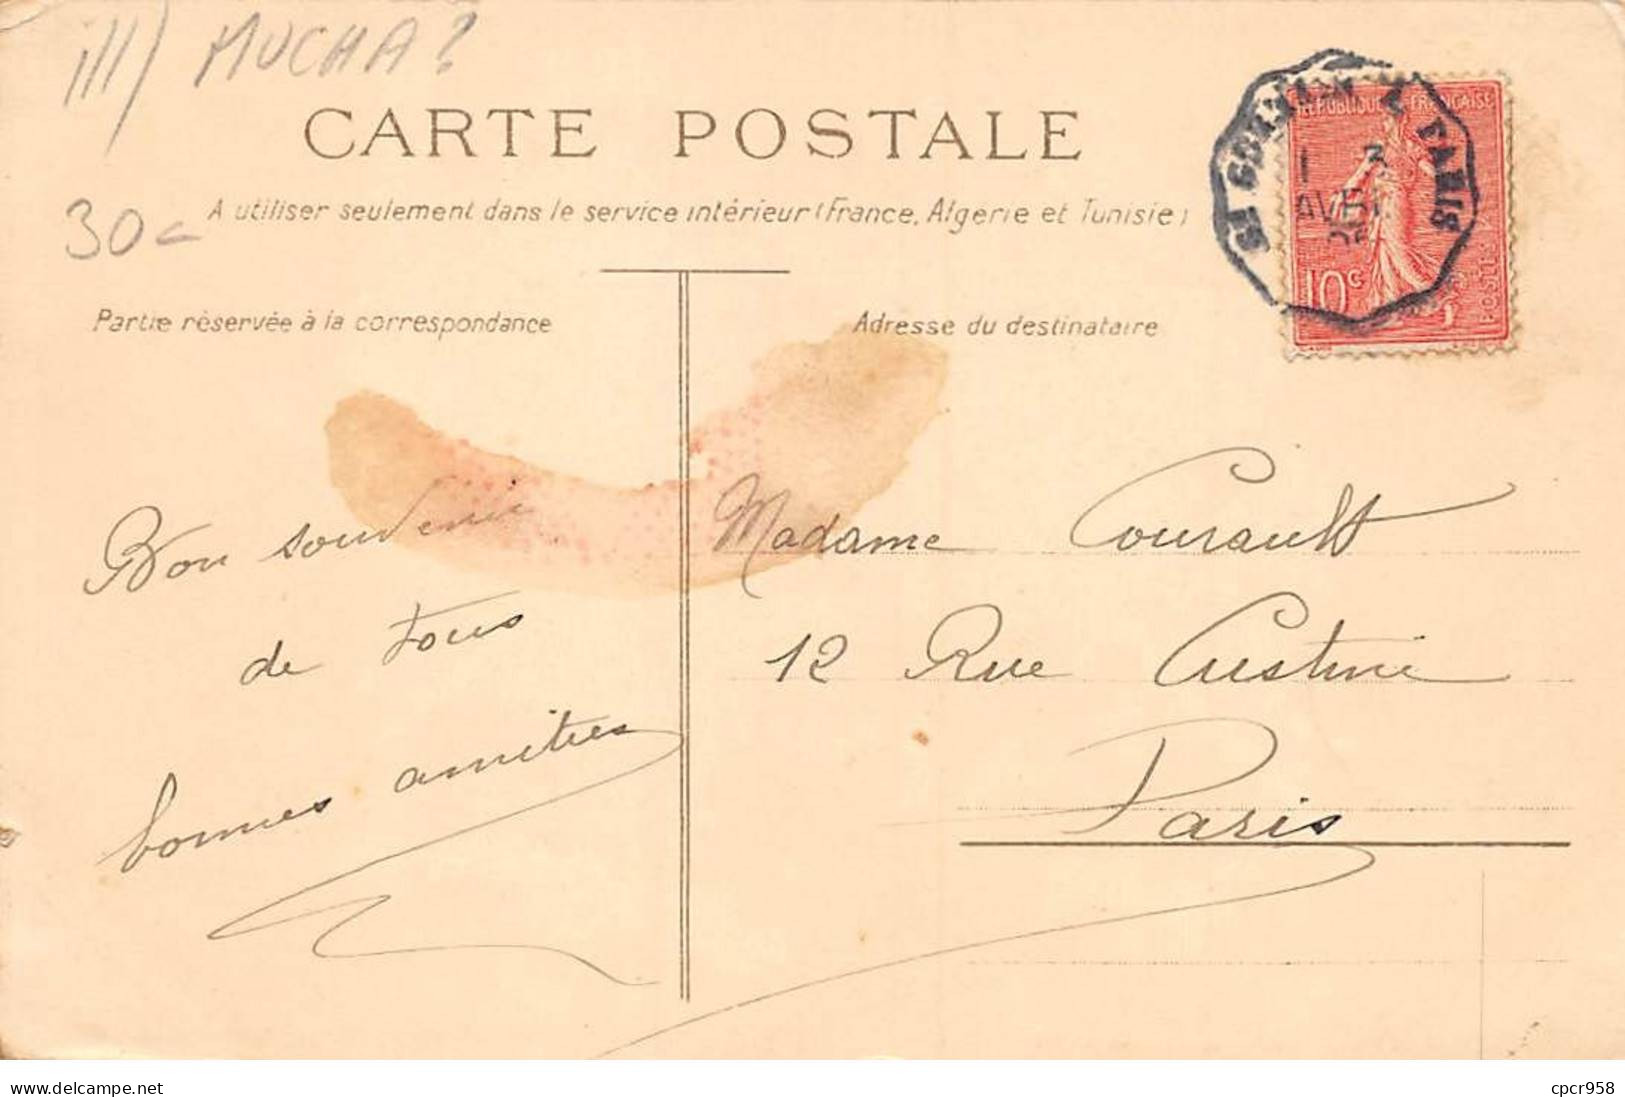 ill) MUCHA?
CARTE POSTALE
30
A utiliser seulement dans le service intérieur (France, Algerie et Tunisie)
Partie réservée à la correspondance
Adresse du destinataire
REPUBLIQUE FRANÇAISE
10c
POSTES
PARIS
1 3
AVRIL
Bon souvenir
de tous
bonnes amitiés
Madame Courault
12 Rue Custine
Paris
www.delcampe.net
cpcr958